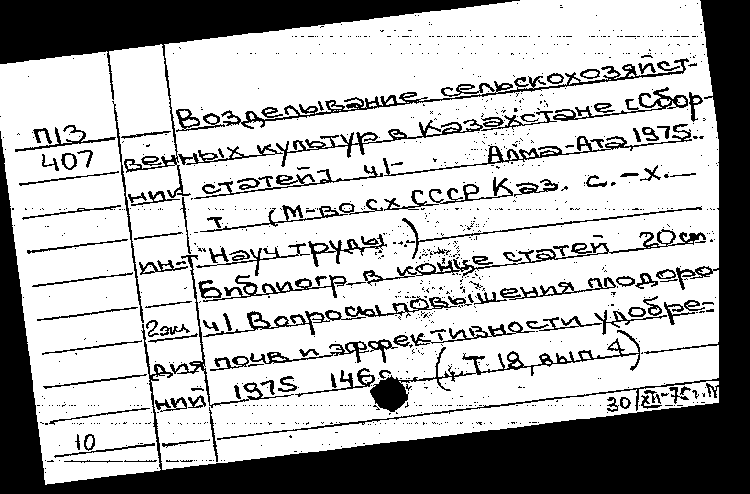 Возделывание сельскохозяйст-
П13
407 венных культур в Казахстане. [Сбор-
ник статей]. ч.1- Алма-Ата, 1975.
т. (М-во с х СССР Каз. с.-х.
ин-т. Науч труды)
Библиогр в конце статей 20см.
2экз ч1. Вопросы повышения плодоро-
дия почв и эффективности удобре-
ний 1975. 146с. (Т.18, вып. 4)
10 30/XII-75г.